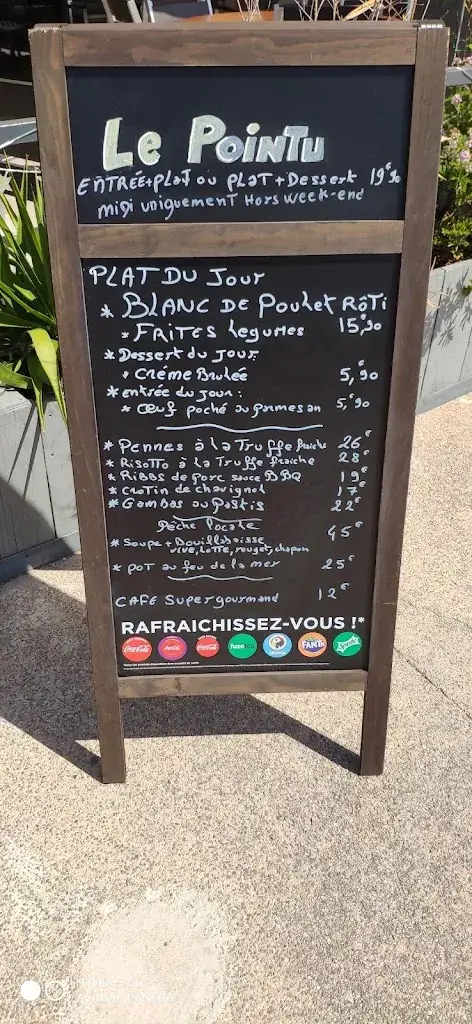 Le PoinTu
ENTRÉE+PlaT ou PLaT+Dessert 19€90
miDi uniquement Hors week-end
PLAT DU Jour
* BLANC DE Poulet RôTi
* FRITES Legumes 15€90
* Dessert du Jour:
* Créme Brulée 5€90
* entrée du Jour:
* Œuf poché au parmesan 5€90
* Pennes à la Truffe fraiche 26€
* Risotto à la Truffe fraiche 28€
* Ribbs de porc sauce BBQ 19€
* Crotin de chavignol 17€
* Gambas au Pastis 22€
Pêche locale
* Soupe + Bouillabaisse 45€
vive, Lotte, rouget, chapon
* POT au feu de la mer 25€
CAFE Super gourmand 12€
RAFRAICHISSEZ-VOUS !*
Coca-Cola Coca-Cola Coca-Cola fuzetea FANTA Sprite